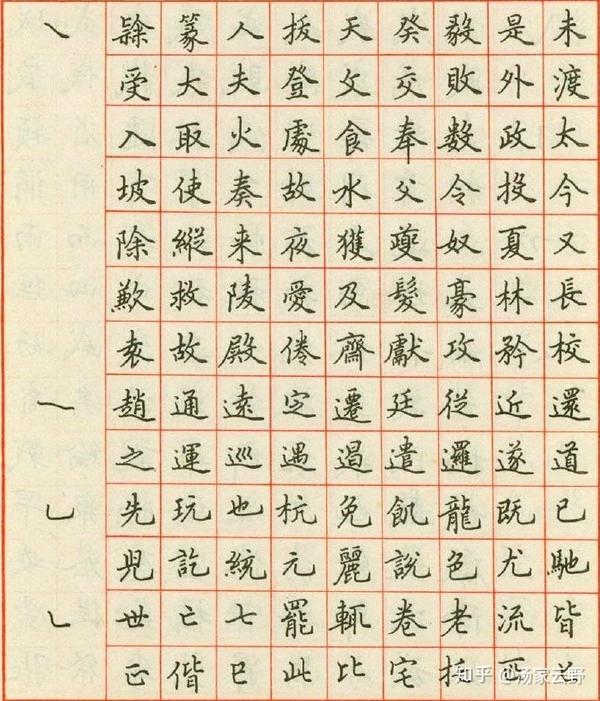 ㇏ 篆 人 拔 天 癸 毅 是 未
受 大 夫 登 文 交 敗 外 渡
入 取 火 處 食 奉 数 政 太
坡 使 奏 故 水 父 令 投 今
除 縱 来 夜 獲 夔 奴 夏 又
歉 救 陵 愛 及 髮 豪 林 長
袁 故 殿 倦 齋 獻 攻 矜 校
趙 通 遠 定 遷 廷 從 近 還
之 運 巡 遇 遏 遣 邏 遂 道
乚 先 玩 也 杭 免 飢 龍 既 已
訖 統 元 麗 說 色 尤 馳
世 亡 七 罷 輒 卷 老 流 皆
偕 巳 此 比 宅 托 匹
知乎 @汤家云野